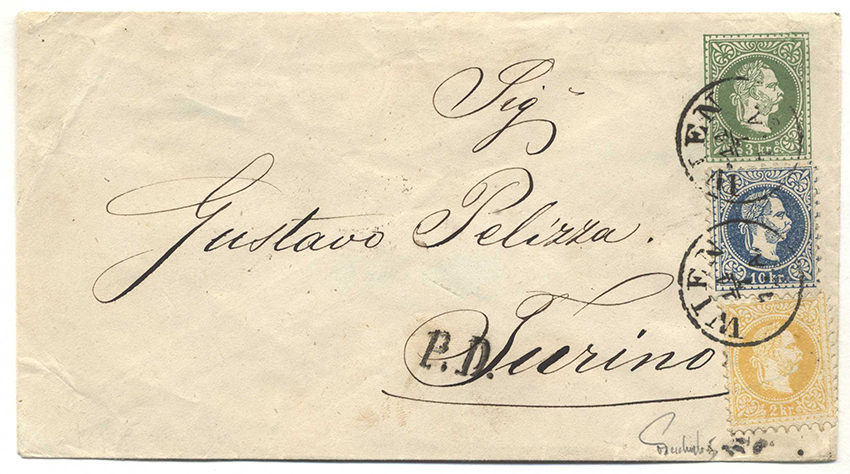 Sig.
Gustavo Pelizza.
Turino
P.D.
3 kr.
WIEN
10 kr.
WIEN
2 kr.